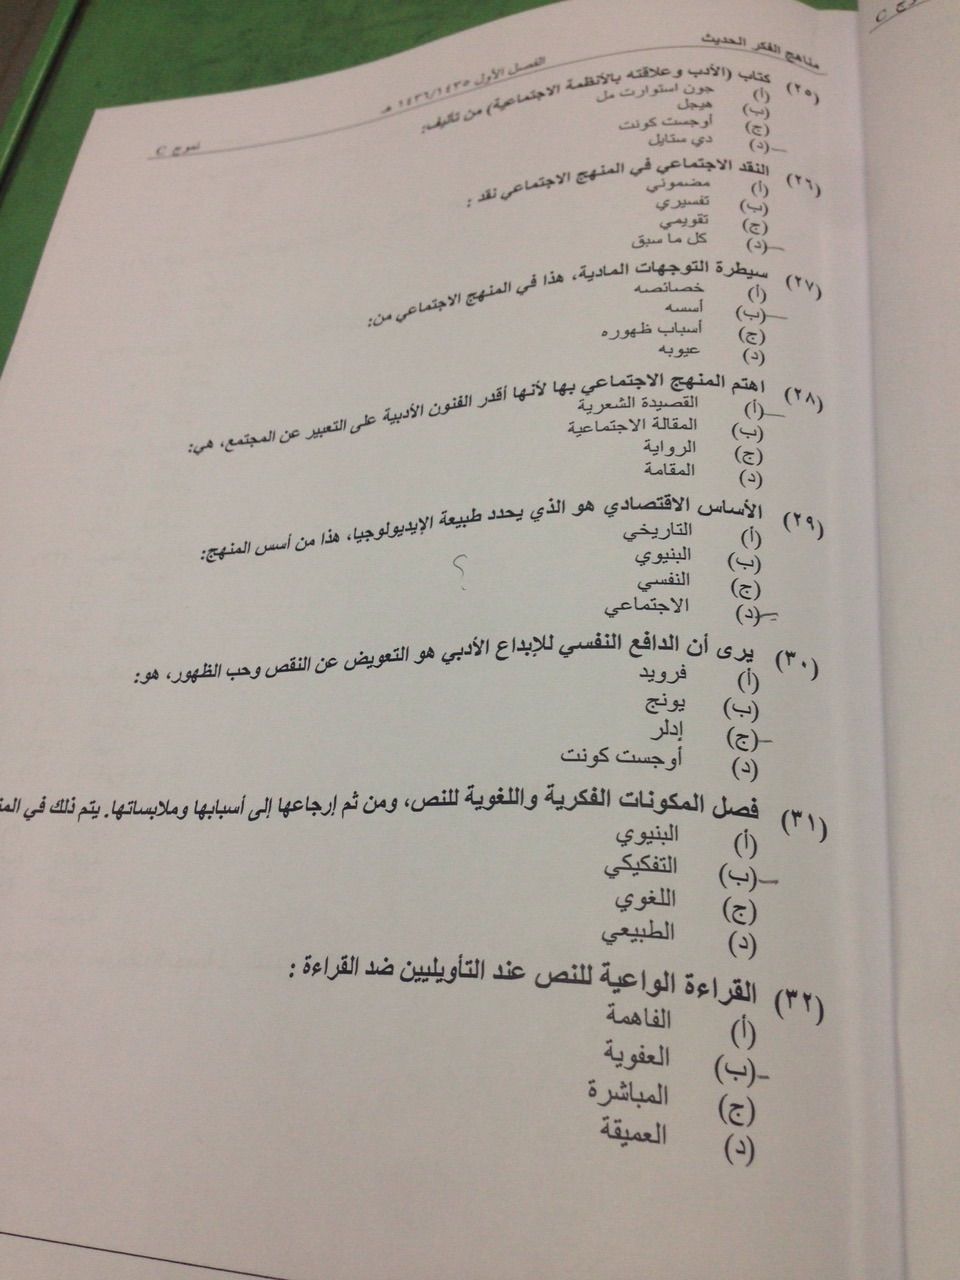 مناهج الفكر الحديث
الفصل الأول ١٤٣٦/١٤٣٥ هـ
نموذج C
(٢٥) كتاب (الأدب وعلاقته بالأنظمة الاجتماعية) من تأليف:
(أ) جون استوارت مل
(ب) هيجل
(ج) أوجست كونت
(د) دي ستايل
(٢٦) النقد الاجتماعي في المنهج الاجتماعي نقد :
(أ) مضموني
(ب) تفسيري
(ج) تقويمي
(د) كل ما سبق
(٢٧) سيطرة التوجهات المادية، هذا في المنهج الاجتماعي من:
(أ) خصائصه
(ب) أسسه
(ج) أسباب ظهوره
(د) عيوبه
(٢٨) اهتم المنهج الاجتماعي بها لأنها أقدر الفنون الأدبية على التعبير عن المجتمع، هي:
(أ) القصيدة الشعرية
(ب) المقالة الاجتماعية
(ج) الرواية
(د) المقامة
(٢٩) الأساس الاقتصادي هو الذي يحدد طبيعة الإيديولوجيا، هذا من أسس المنهج:
(أ) التاريخي
(ب) البنيوي
(ج) النفسي
(د) الاجتماعي
؟
(٣٠) يرى أن الدافع النفسي للإبداع الأدبي هو التعويض عن النقص وحب الظهور، هو:
(أ) فرويد
(ب) يونج
(ج) إدلر
(د) أوجست كونت
(٣١) فصل المكونات الفكرية واللغوية للنص، ومن ثم إرجاعها إلى أسبابها وملابساتها. يتم ذلك في
(أ) البنيوي
(ب) التفكيكي
(ج) اللغوي
(د) الطبيعي
(٣٢) القراءة الواعية للنص عند التأويليين ضد القراءة :
(أ) الفاهمة
(ب) العفوية
(ج) المباشرة
(د) العميقة